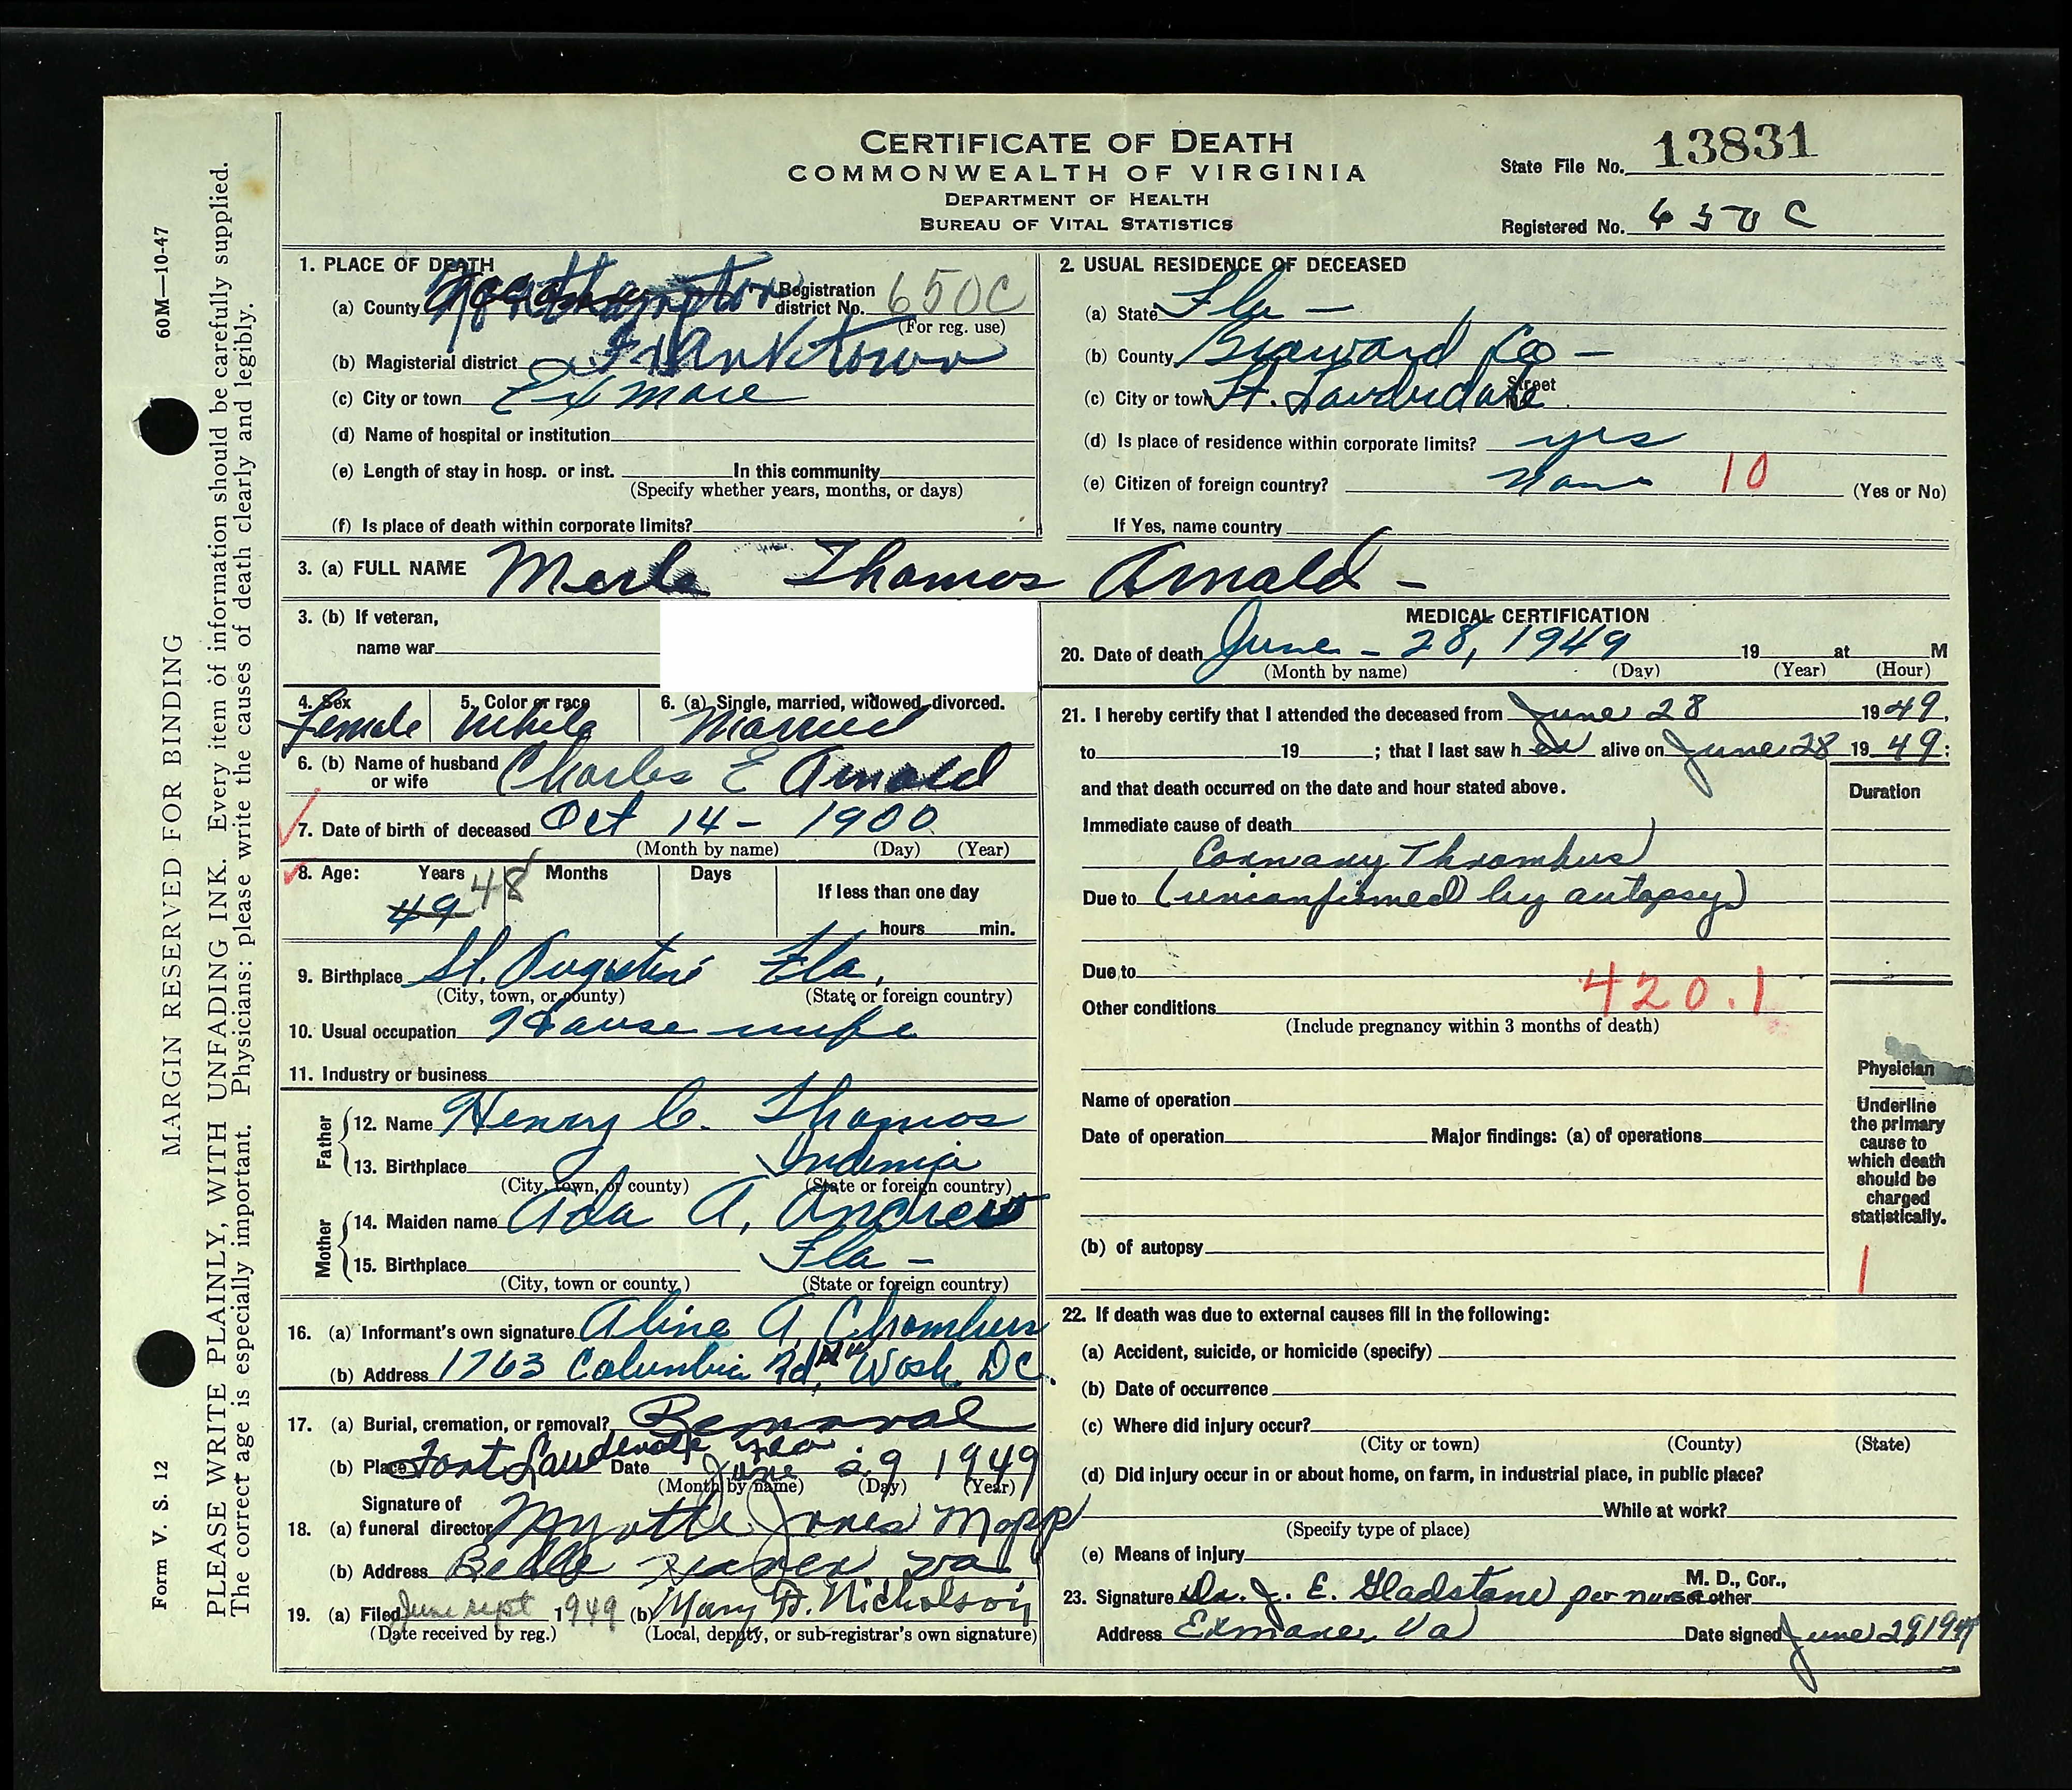 CERTIFICATE OF DEATH
COMMONWEALTH OF VIRGINIA
DEPARTMENT OF HEALTH
BUREAU OF VITAL STATISTICS
State File No. 13831
Registered No. 650 C
60M—10-47
MARGIN RESERVED FOR BINDING
Form V. S. 12
PLEASE WRITE PLAINLY, WITH UNFADING INK. Every item of information should be carefully supplied.
The correct age is especially important. Physicians: please write the causes of death clearly and legibly.
1. PLACE OF DEATH
(a) County Northampton Registration district No. 650C
(For reg. use)
(b) Magisterial district Franktown
(c) City or town Exmore
(d) Name of hospital or institution
(e) Length of stay in hosp. or inst. In this community
(Specify whether years, months, or days)
(f) Is place of death within corporate limits?
2. USUAL RESIDENCE OF DECEASED
(a) State Fla —
(b) County Broward Co —
(c) City or town Ft. Lauderdale Street
(d) Is place of residence within corporate limits? yes
(e) Citizen of foreign country? 10 (Yes or No)
If Yes, name country
3. (a) FULL NAME Merle Thomas Arnold —
3. (b) If veteran,
name war
4. Sex 5. Color or race 6. (a) Single, married, widowed, divorced.
Female White Married
6. (b) Name of husband or wife Charles E Arnold
7. Date of birth of deceased Oct 14 — 1900
(Month by name) (Day) (Year)
8. Age: Years Months Days If less than one day
49 48 hours min.
9. Birthplace St. Augustine Fla,
(City, town, or county) (State or foreign country)
10. Usual occupation House wife
11. Industry or business
Father
12. Name Henry C. Thomas
13. Birthplace
(City, town, or county) (State or foreign country)
Mother
14. Maiden name Ada A. Andrew
15. Birthplace Fla —
(City, town or county) (State or foreign country)
16. (a) Informant's own signature Aline A Chambers
(b) Address 1763 Columbia Rd, NW Wash. D C.
17. (a) Burial, cremation, or removal? Removal
(b) Place Fort Lauderdale Fla Date June 29 1949
(Month by name) (Day) (Year)
Signature of
18. (a) funeral director Myrtle Jones Mapp
(b) Address Belle Haven Va
19. (a) Filed June rept 1949 (b) Mary D. Nicholson
(Date received by reg.) (Local, deputy, or sub-registrar's own signature)
MEDICAL CERTIFICATION
20. Date of death June — 28, 1949 19 at M
(Month by name) (Day) (Year) (Hour)
21. I hereby certify that I attended the deceased from June 28 1949,
to 19 ; that I last saw h er alive on June 28 1949:
and that death occurred on the date and hour stated above. Duration
Immediate cause of death
Coronary Thrombus
Due to (unconfirmed by autopsy)
Due to
420.1
Other conditions
(Include pregnancy within 3 months of death)
Name of operation
Date of operation Major findings: (a) of operations
(b) of autopsy
Physician
Underline
the primary
cause to
which death
should be
charged
statistically.
1
22. If death was due to external causes fill in the following:
(a) Accident, suicide, or homicide (specify)
(b) Date of occurrence
(c) Where did injury occur?
(City or town) (County) (State)
(d) Did injury occur in or about home, on farm, in industrial place, in public place?
While at work?
(Specify type of place)
(e) Means of injury
M. D., Cor.,
23. Signature Dr. J. E. Gladstone per nurse or other
Address Exmore, Va Date signed June 29 1949